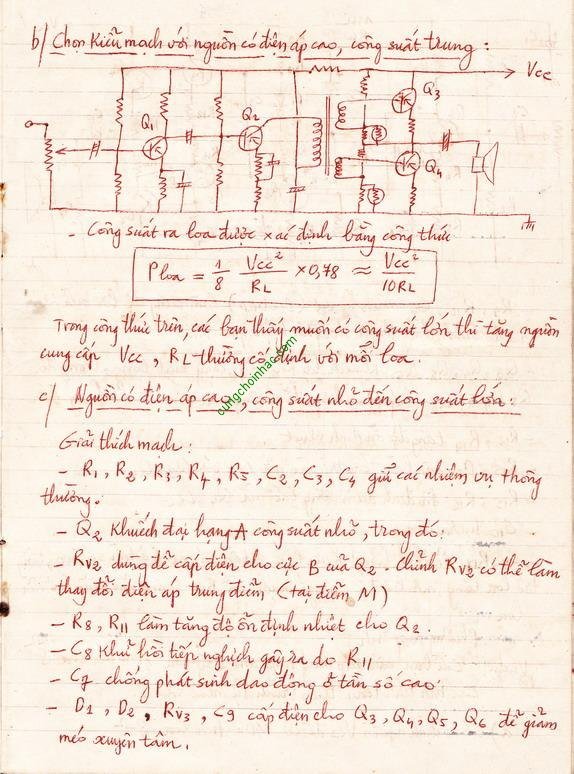 b/ Chọn kiểu mạch với nguồn có điện áp cao, công suất trung :
Vcc
Q1
Q2
Q3
Q4
- Công suất ra loa được xác định bằng công thức
Ploa = 1/8 Vcc²/RL × 0,78 ≈ Vcc²/10RL
Trong công thức trên, các bạn thấy muốn có công suất lớn thì tăng nguồn
cung cấp Vcc, RL thường cố định với mỗi loa.
cungchoinhac.com
c/ Nguồn có điện áp cao, công suất nhỏ đến công suất lớn :
Giải thích mạch :
- R1, R2, R3, R4, R5, C2, C3, C4 giữ các nhiệm vụ thông
thường.
- Q2 Khuếch đại hạng A công suất nhỏ, trong đó:
- RV2 dùng để cấp điện cho cực B của Q2. Chỉnh RV2 có thể làm
thay đổi điện áp trung điểm (tại điểm M)
- R8, R11 làm tăng độ ổn định nhiệt cho Q2.
- C8 Khử hồi tiếp nghịch gây ra do R11
- C7 chống phát sinh dao động ở tần số cao
- D1, D2, RV3, C9 cấp điện cho Q3, Q4, Q5, Q6 để giảm
méo xuyên tâm.